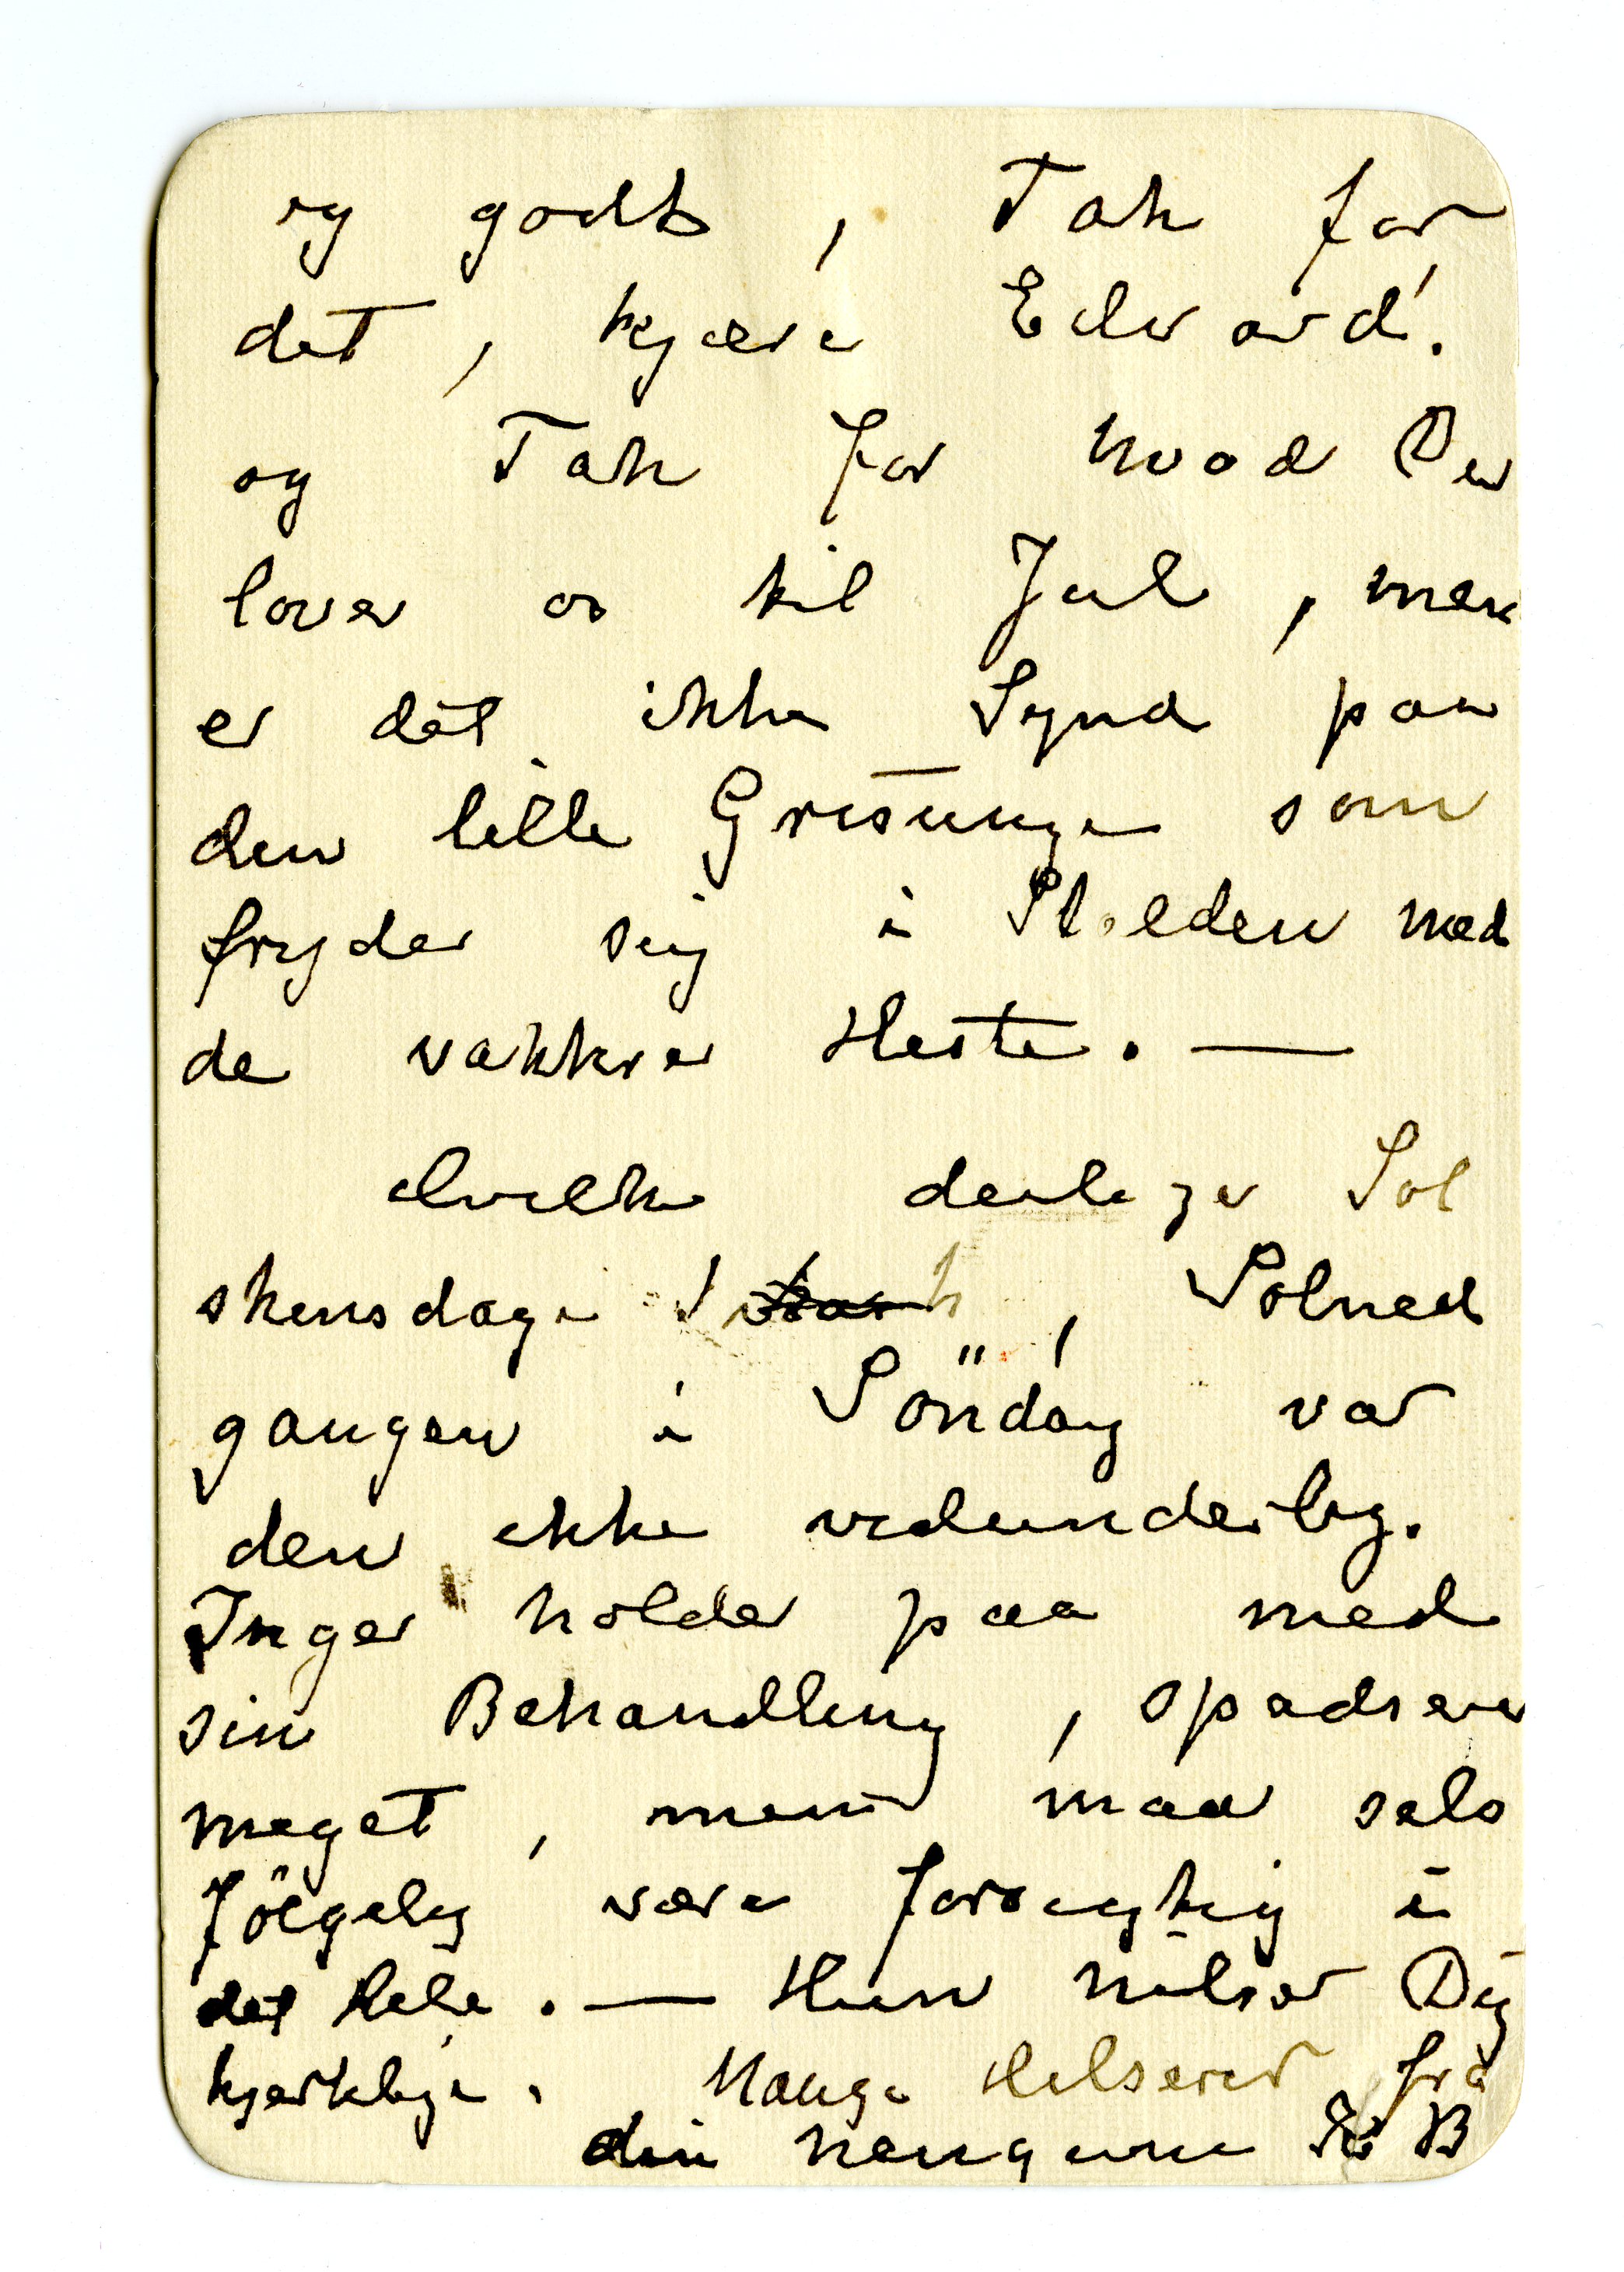 og godt, Tak for
det, kjære Edvard!
og Tak for hvad Du
lover os til Jul, men
er det ikke Synd paa
den lille Grisunge som
fryder sig i Sl.eden med
de vakkre Heste. —
Hvilke deilige Sol
skinsdage, Solned
gangen i Söndag var
den ikke vidunderlig.
Inger holder paa med
sin Behandling, spadserer
meget, men maa selv
fölgelig være forsigtig i
det hele. — Hun hilser Dig
hjertelige. Mange Hilsener fra
din hengivne K B